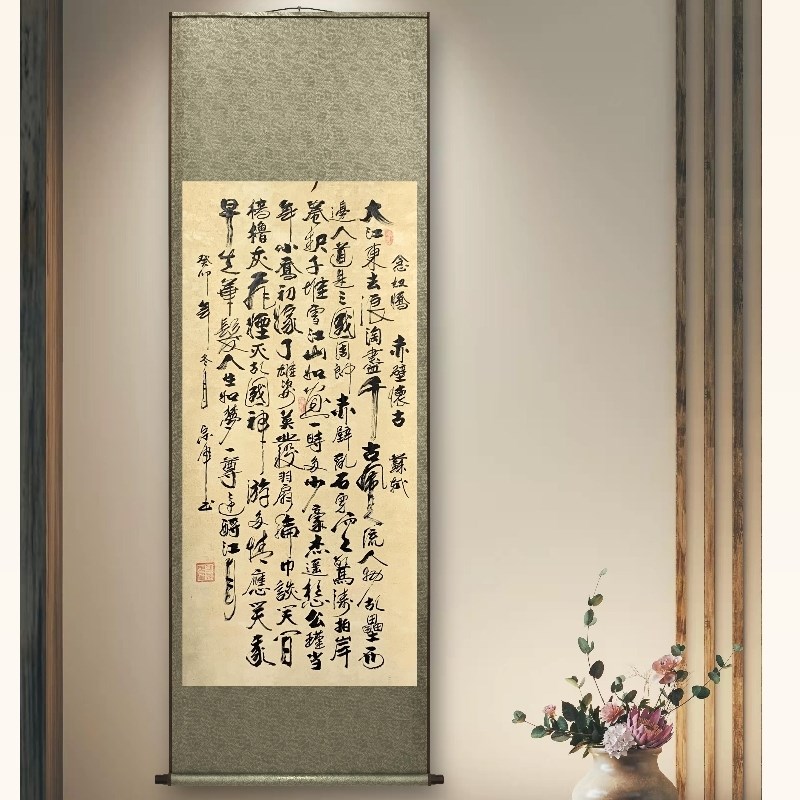 念奴嬌 赤壁懷古 蘇軾
大江東去浪淘盡千古風流人物故壘西
邊人道是三國周郎赤壁亂石穿空驚濤拍岸
卷起千堆雪江山如畫一時多少豪杰遥想公瑾当
年小喬初嫁了雄姿英發羽扇綸巾談笑間
檣櫓灰飛煙灭故國神游多情應笑我
早生華髮人生如夢一尊還酹江月
癸卯年冬月